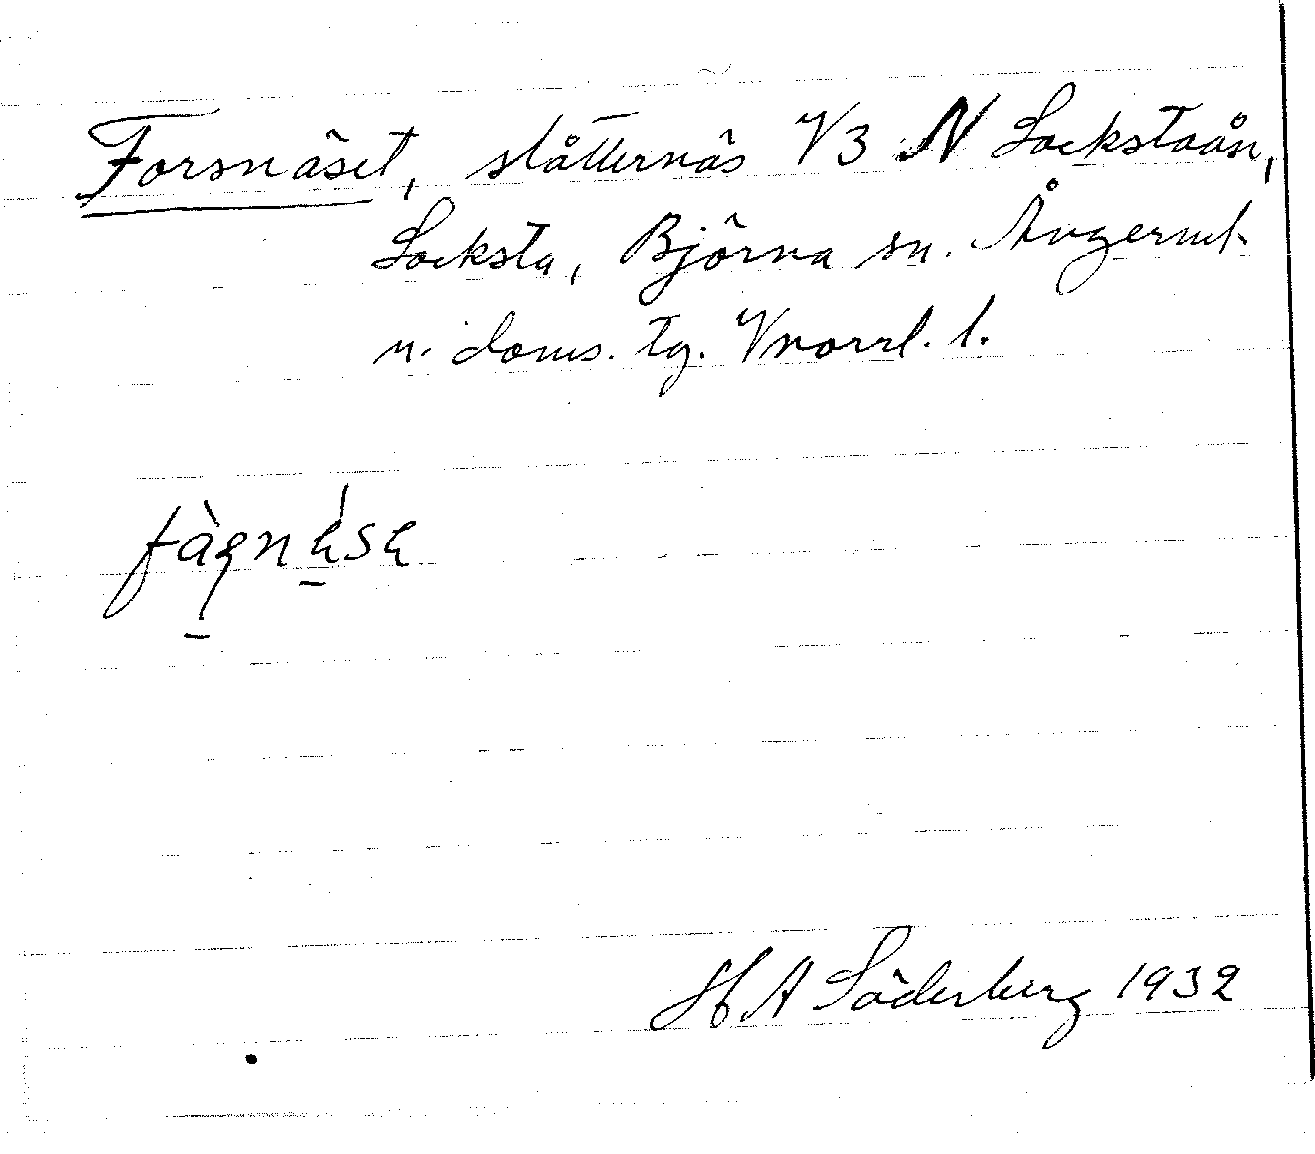 Forsnäset, slåtternäs V3 N Lockstaån,
Locksta, Björna sn. Ångerml.
n. doms. tg. Vnorrl. l.
H A Söderberg 1932